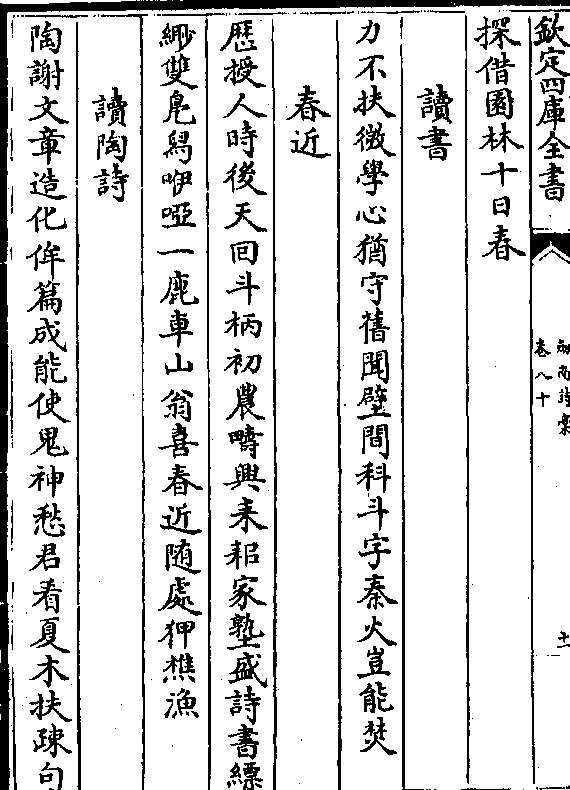 欽定四庫全書
劒南詩稾
卷八十
十一
探借園林十日春
讀書
力不扶微學心猶守舊聞壁間科斗字秦火豈能焚
春近
歴授人時後天回斗柄初農疇興耒耜家塾盛詩書縹
緲雙鳬舄咿啞一鹿車山翁喜春近随處狎樵漁
讀陶詩
陶謝文章造化侔篇成能使鬼神愁君看夏木扶疎句